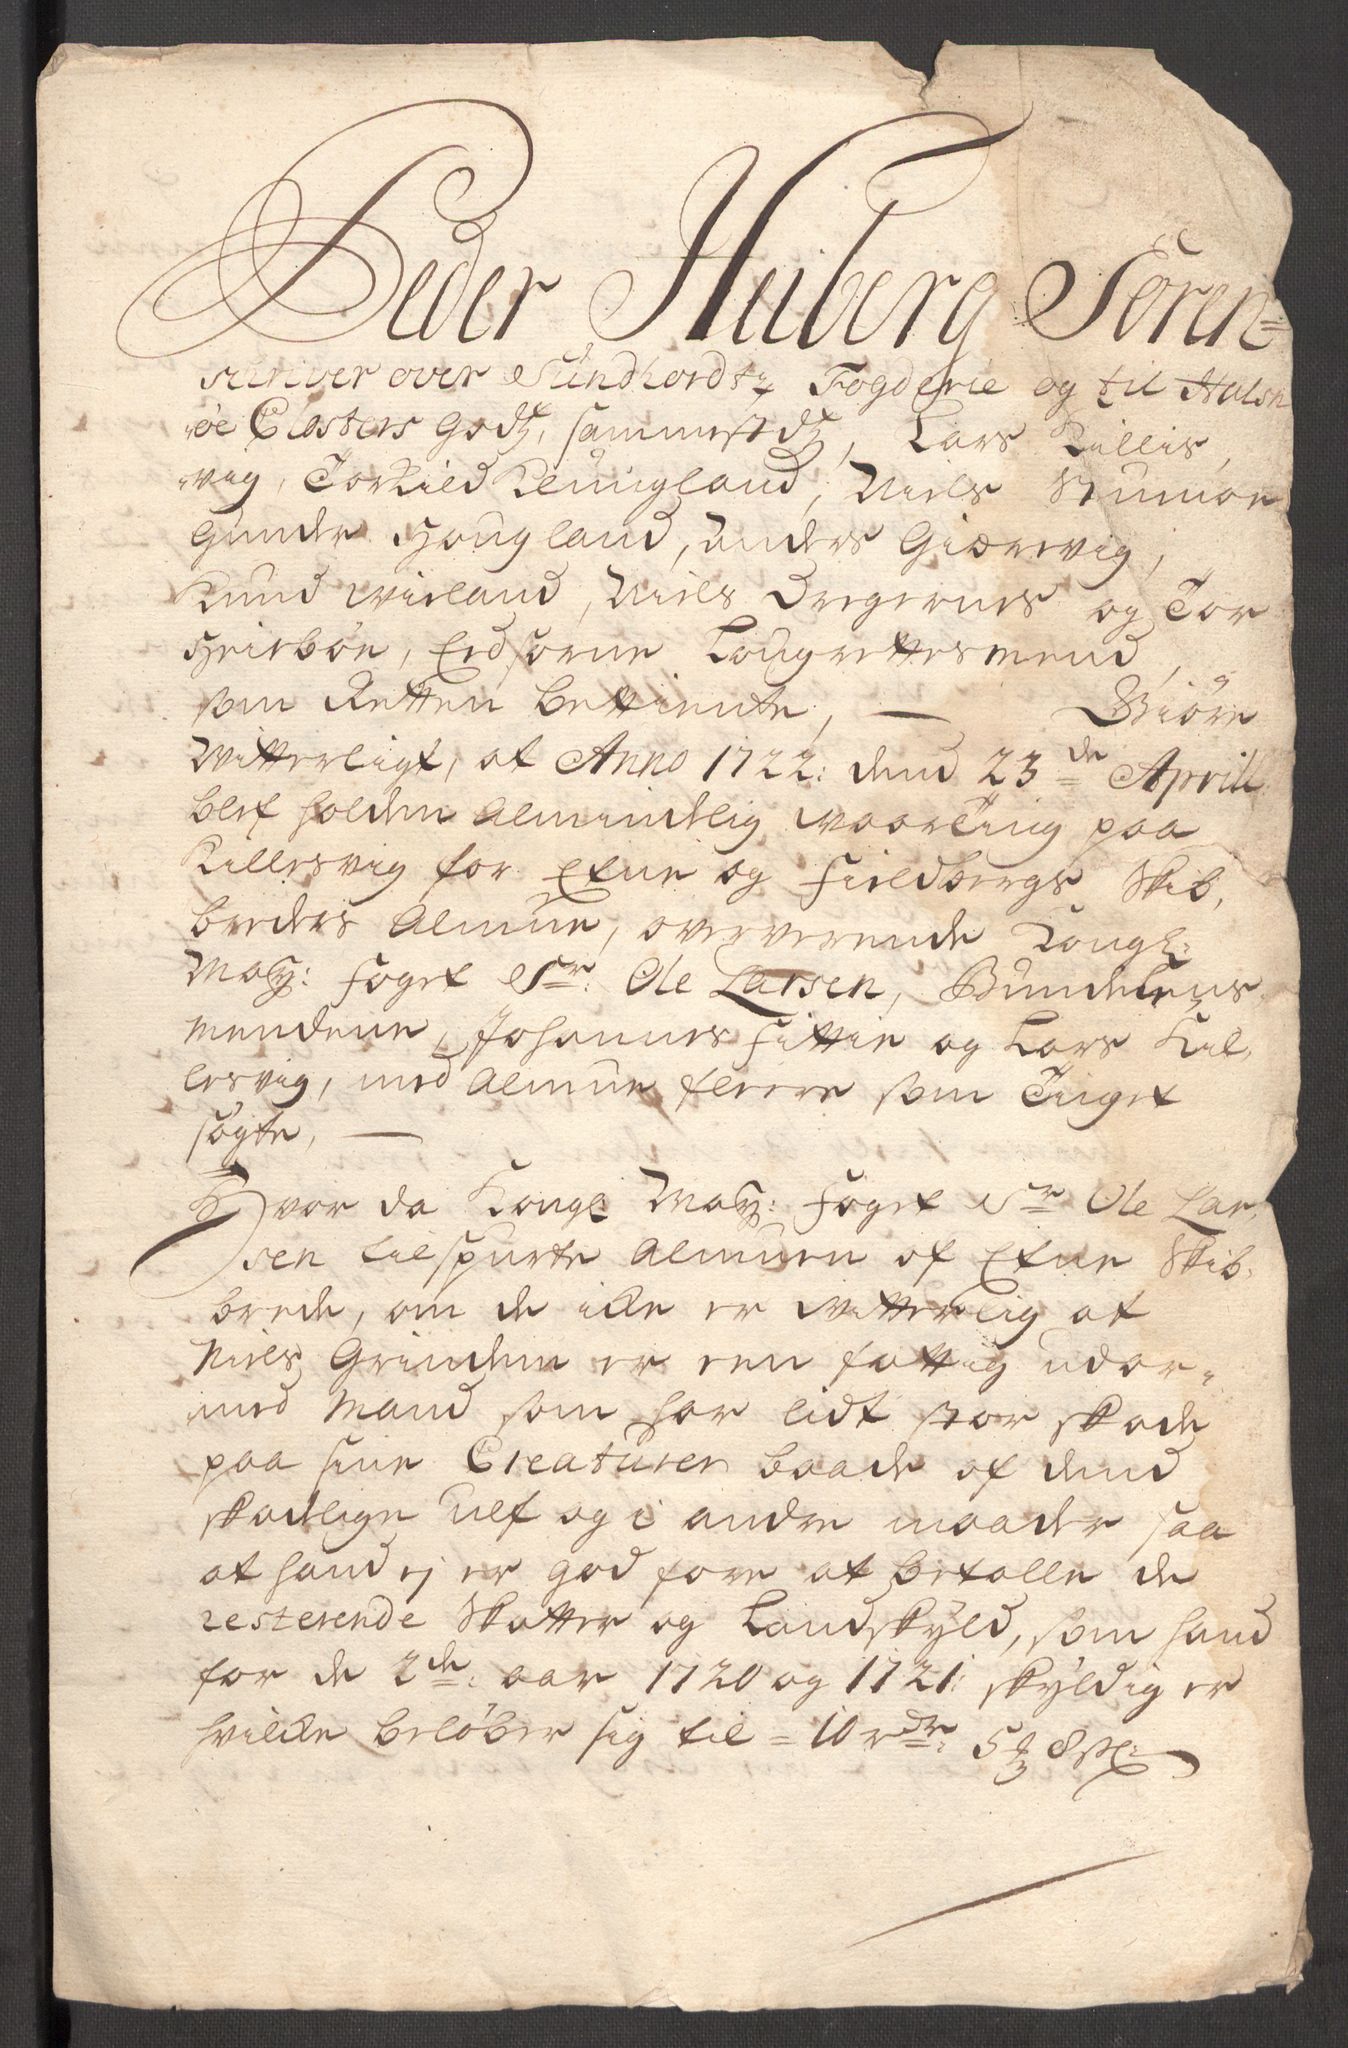 Peder Heiberg Soren=
schriver over Sundhordtz Fogderie og til Halsn
øe Closters Godtz, sammestedtz, Lars Killis,
vig, Torkild Klungland, Niels
Gunder Hougland, Anders Giærevig,
Knud Wieland, Niels Dregernes og Tor
Heirbøe, Eedsorne Laugrettesmend,
som Retten bettiente, — Giøre
Witterligt, at Anno 1722: dend 23de Aprill
blef holden Almindelig WaarTing paa
Killesvig for Etne og Fieldbergs Skib,
breders Almue, oververende Kongl:
May: Foget Sr: Ole Larsen, Bundelens
mendene, Johannes Fittie og Lars Kil,
lesvig, med Almue fleere som Tinget
søgte, —
Hvor da Kongl: May: Foget Sr Ole Lar,
sen tilspurte Almuen af Etne Skib,
brede, om de icke er Witterlig at
Niels Grinden er een fattig udar,
med Mand som har lidt stor skade
paa sine Creaturer baade af dend
skadelige Ulf og i andre maader saa
at hand ej er god fore at betalle de
resterende Skatter og Landskyld, som hand
for de 2de: aar 1720 og 1721: skyldig er
hvilke beløber sig til = 10 rdr: 5 ₰ 8 sl: